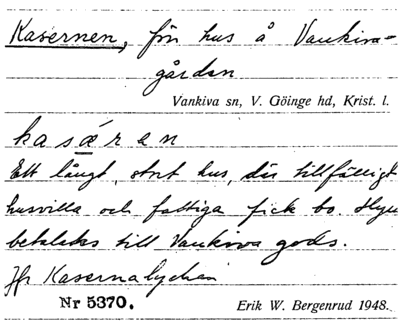 Kasernen, för hus å Vankiva-
gården
Vankiva sn, V. Göinge hd, Krist. l.
kasæ̱ren
Ett långt, stort hus, där tillfälligt
husvilla och fattiga fick bo. Hyra
betalats till Vankiva gods.
Jfr Kasernalyckan
Nr 5370. Erik W. Bergenrud 1948.